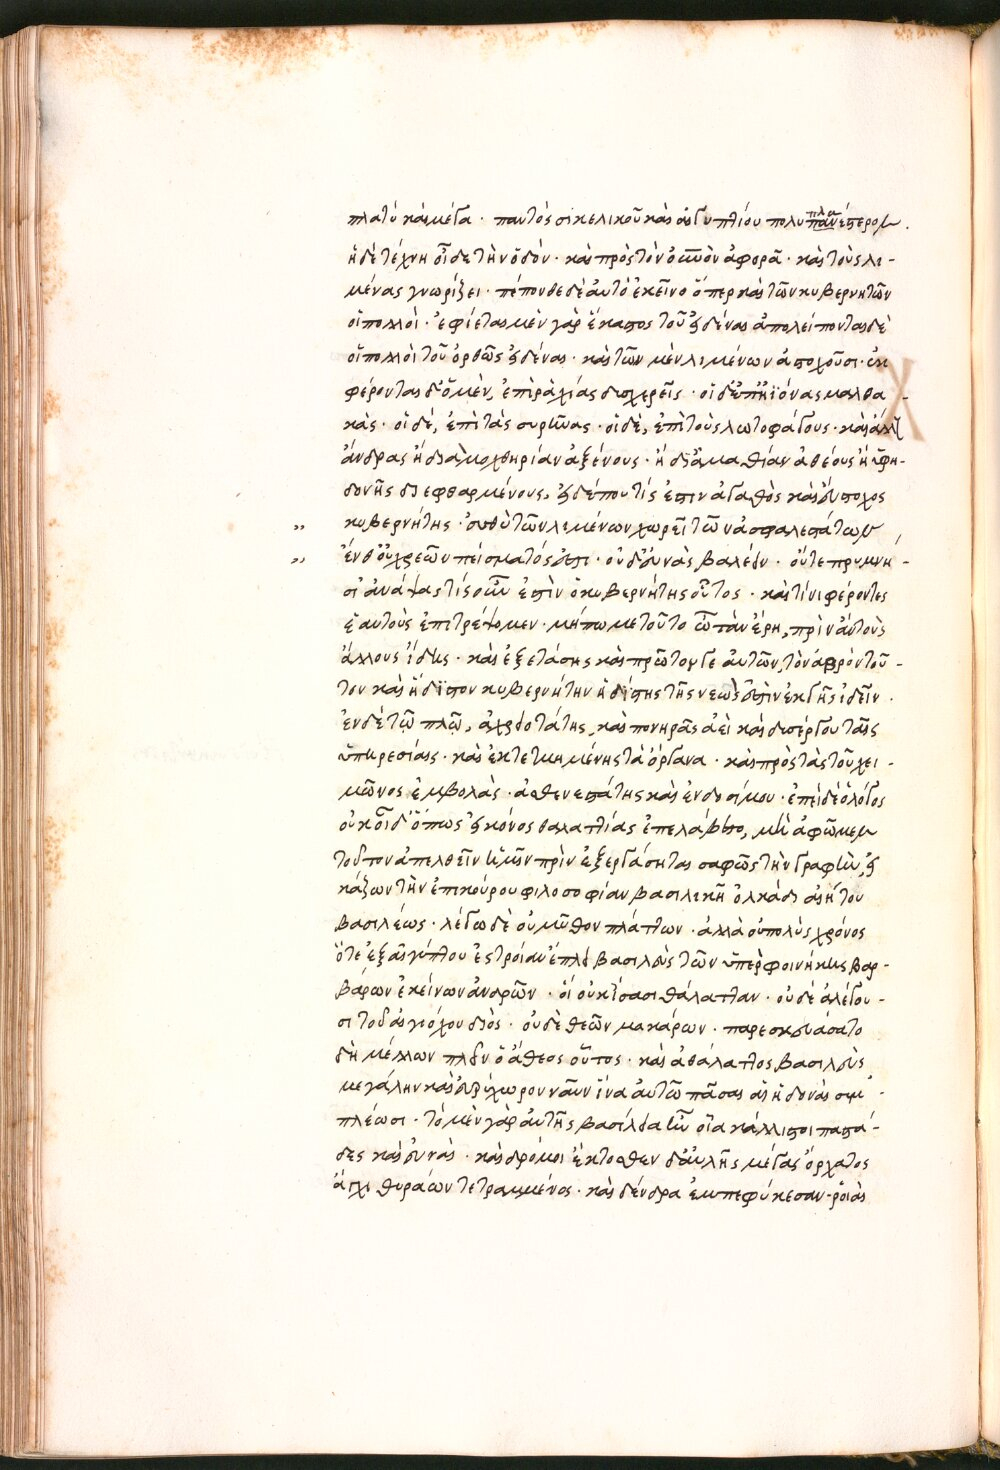 πλατὺ καὶ μέγα · παντὸς σικελικοῦ καὶ αἰγυπτίου πολυπλανέστερον.
ἡ δὲ τέχνη οἶδε τὴν ὁδὸν · καὶ πρὸς τὸν οὐρανὸν ἀφορᾷ · καὶ τοὺς λι-
μένας γνωρίζει · πέπονθε δὲ αὐτὸ ἐκεῖνο ὅπερ καὶ τῶν κυβερνητῶν
οἱ πολλοὶ · ἐφίεται μὲν γὰρ ἕκαστος τοῦ εἰδέναι ἀπολείπονται δὲ
οἱ πολλοὶ τοῦ ὀρθῶς εἰδέναι · καὶ τῶν μὲν λιμένων ἀστοχοῦσι · ἐκ
φέρονται δ' οἱ μὲν, ἐπὶ ῥαχίας δυσχερεῖς · οἱ δ' ἐπ' ἠϊόνας μαλθα-
κάς · οἱ δὲ, ἐπὶ τὰς σειρῆνας · οἱ δὲ, ἐπὶ τοὺς λωτοφάγους · καὶ ἄλλους
ἄνδρας ἢ διὰ μοχθηρίαν ἀξένους · ἢ δι' ἀμαθίαν ἀθέους ἢ ὑφ' ἡ-
δονῆς διεφθαρμένους, εἰ δέ που τίς ἐστιν ἀγαθὸς καὶ εὔστοχος
κυβερνήτης · εὐθὺ τῶν λιμένων χωρεῖ τῶν ἀσφαλεστάτων
ἔνθ' οὐ χρεὼν πείσματός ἐστι · οὐδ' εὐνὰς βαλέειν · οὔτε πρυμνή-
σι' ἀνάψαι τίς οὖν ἐστὶν ὁ κυβερνήτης οὗτος · καὶ τίνι φέροντες
ἑαυτοὺς ἐπιτρέψομεν · μήπω με τοῦτο ὦ τὰν ἔρῃ, πρὶν αὐτοὺς
ἄλλους ἴδῃς · καὶ ἐξετάσῃς καὶ πρῶτον γε αὐτῶν, τὸν ἁβρὸν τοῦ-
τον καὶ ἥδιστον κυβερνήτην ἡδίστης τῆς νεὼς ἐστὶν ἐκ γῆς ἰδεῖν ·
ἐν δὲ τῷ πλῷ, ἀχρειοτάτης, καὶ πονηρᾶς ἀεὶ καὶ δυσέργου ταῖς
ὑπηρεσίαις · καὶ ἐκτετμημένης τὰ ὄργανα · καὶ πρὸς τὰς τοῦ χει-
μῶνος ἐμβολὰς · ἀσθενεστάτης καὶ ἐνδοσίμου · ἐπεὶ δὲ ὁ λόγος
οὐκ οἶδ' ὅπως εἰκόνος θαλαττίας ἐπελάβετο, μὴ ἀφῶμεν
τοῦτον ἀπελθεῖν ἡμῖν πρὶν ἐξεργάσηται σαφῶς τὴν γραφὴν, εἰ
κάζων τὴν ἐπικούρου φιλοσοφίαν βασιλικῇ ὁλκάδι αἰήτου
βασιλέως · λέγω δὲ οὐ μῦθον πλάττων · ἀλλὰ οὐ πολὺς χρόνος
ὅτε ἐξ αἰγύπτου ἐς τροίαν ἔπλει βασιλεὺς τῶν ὑπὲρ φοινίκης βαρ-
βάρων ἐκείνων ἀνδρῶν · οἳ οὐκ ἴσασι θάλατταν · οὐδὲ ἀλέγου-
σι τοῦ αἰγιόχου διὸς · οὐδὲ θεῶν μακάρων · παρεσκευάσατο
δὴ μέλλων πλεῖν ὁ ἄθεος οὗτος · καὶ ἀθάλαττος βασιλεὺς
μεγάλην καὶ εὐρύχωρον ναῦν ἵνα αὐτῷ πᾶσαι αἱ ἡδοναὶ συμ-
πλέωσι · τὸ μὲν γὰρ αὐτῆς βασίλεια ἦν οἷα κάλλιστοι παστά-
δες καὶ εὐναὶ · καὶ δρόμοι ἔκτοσθεν δ' αὐλῆς μέγας ὄρχατος
ἄγχι θυράων τετραμμένος · καὶ δένδρα ἐμπεφύκεσαν · ῥοιαὶ